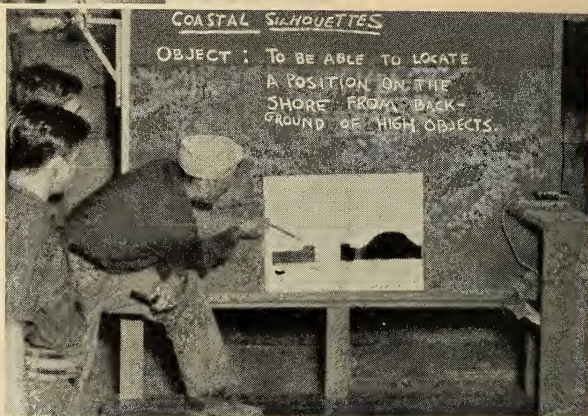 COASTAL SILHOUETTES
OBJECT : TO BE ABLE TO LOCATE
A POSITION ON THE
SHORE FROM BACK-
GROUND OF HIGH OBJECTS.